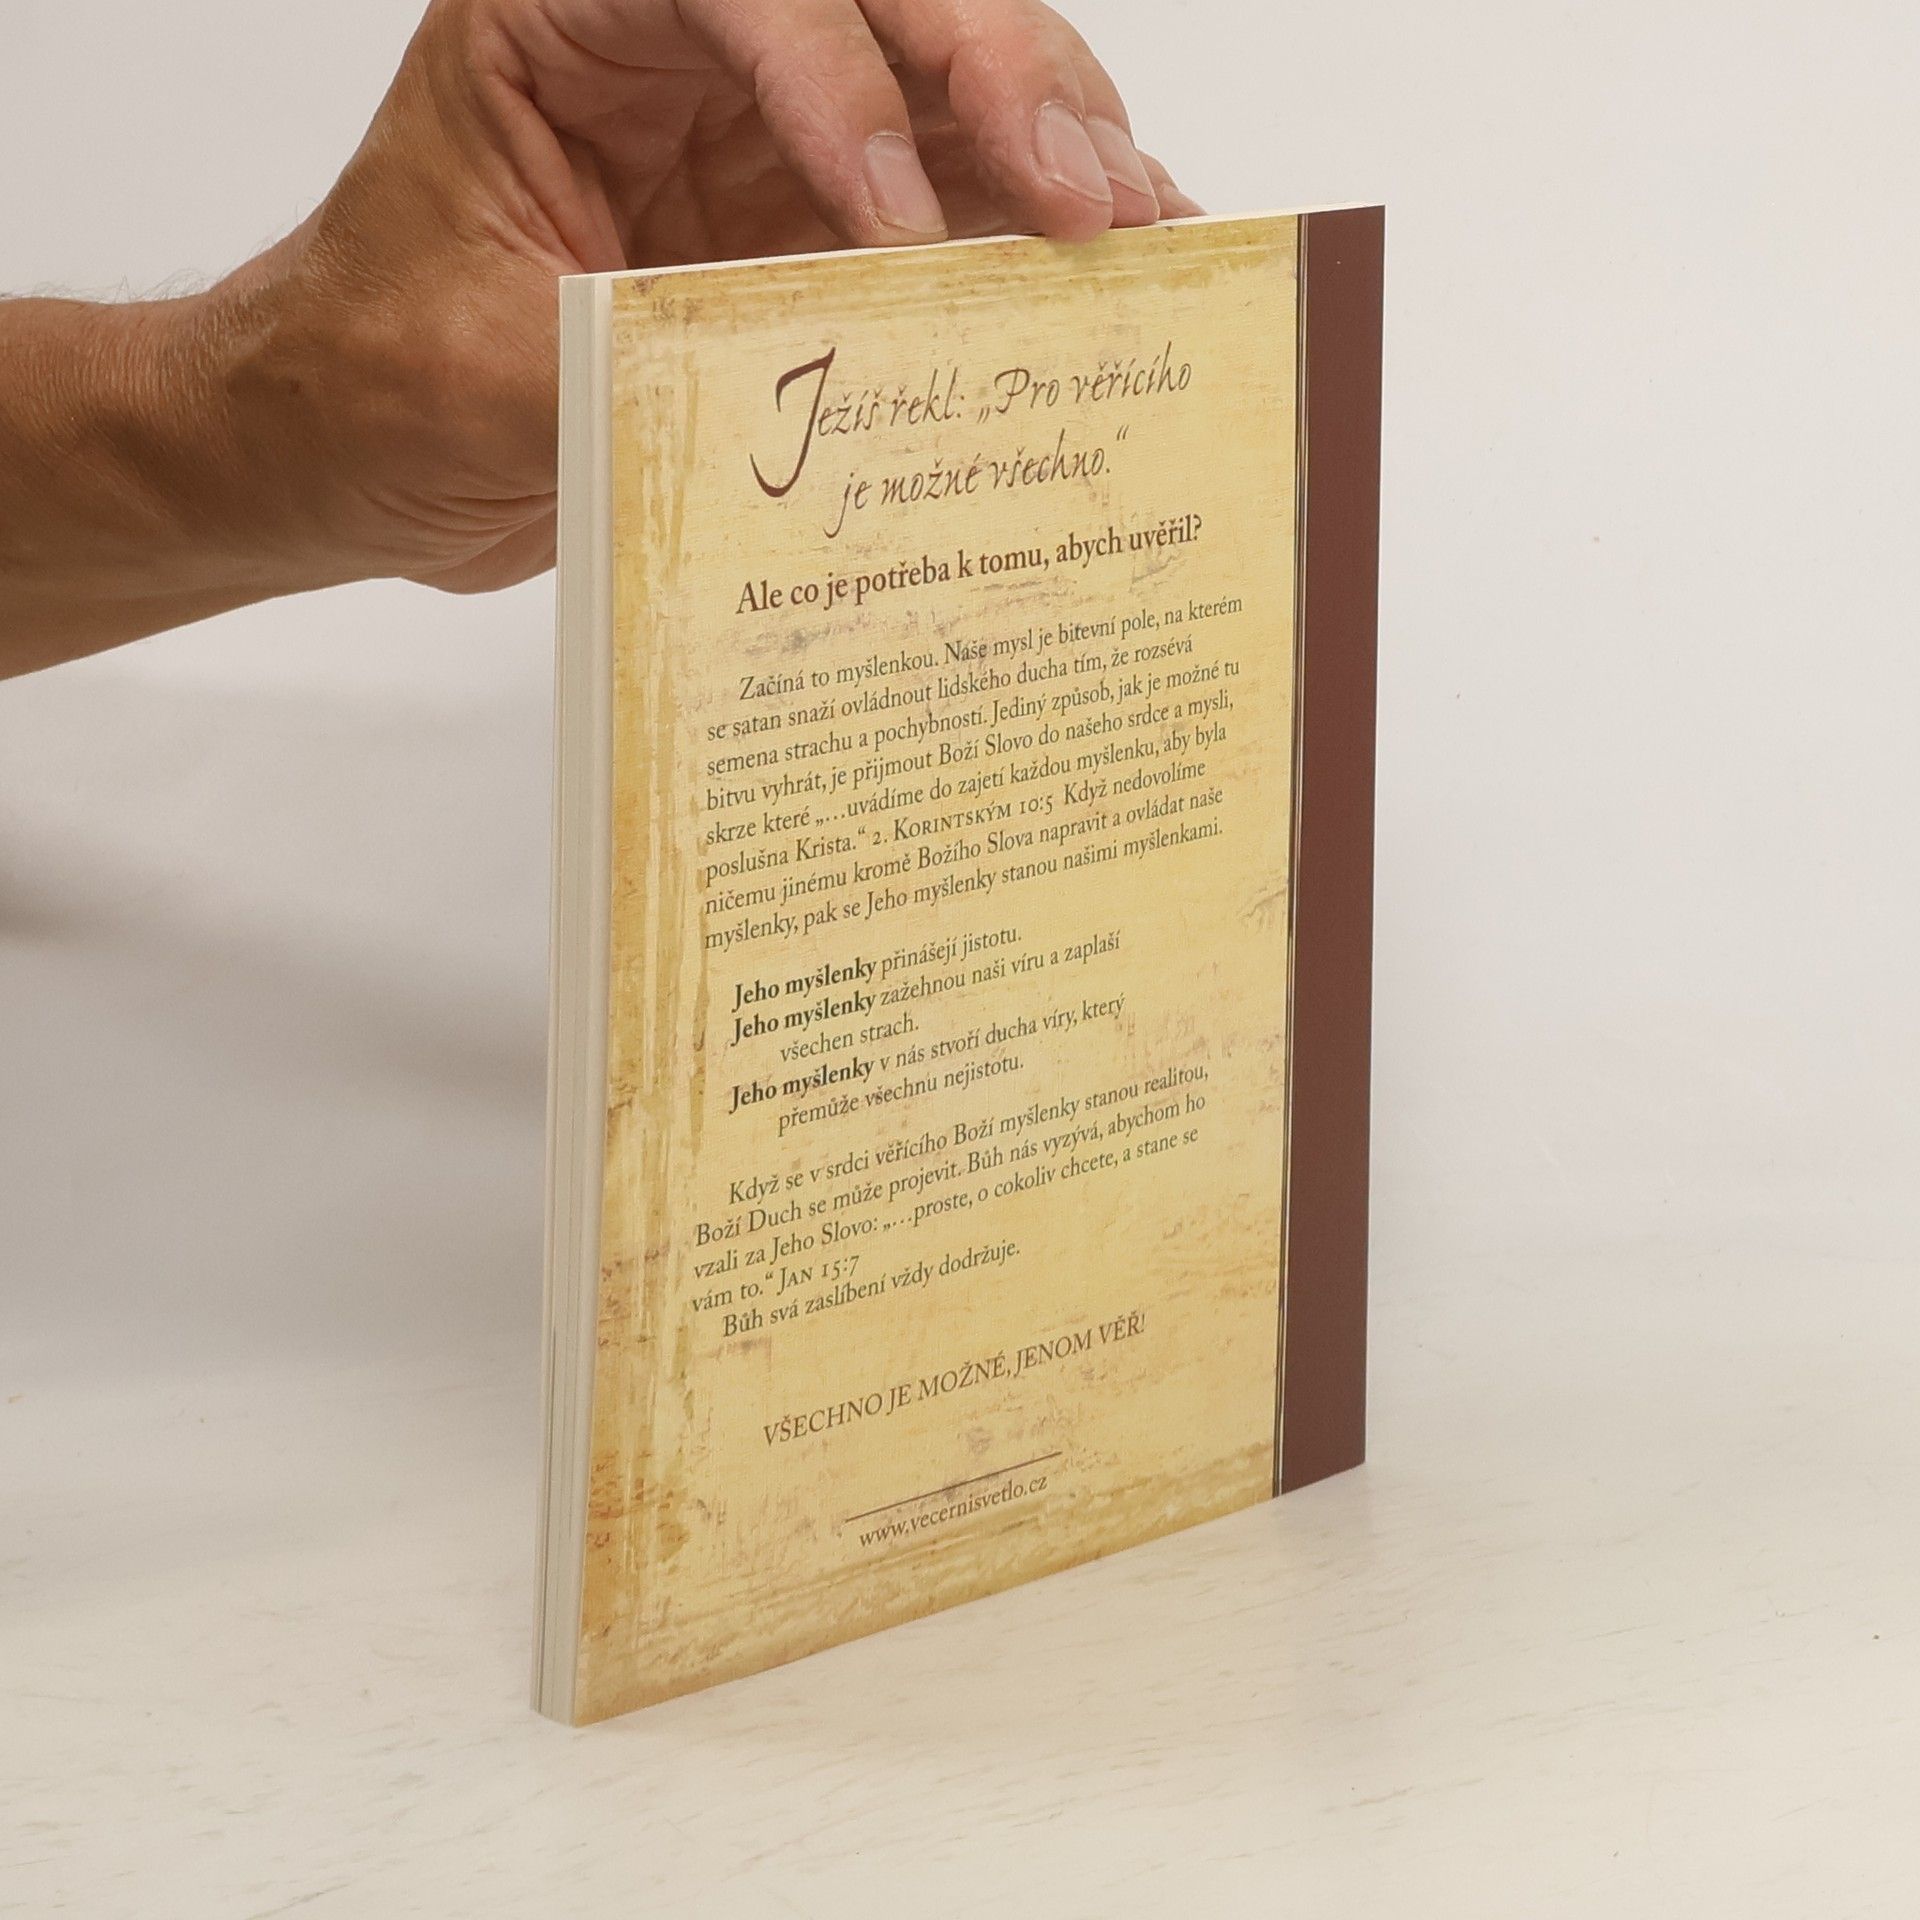 Ježíš řekl: „Pro věřícího
je možné všechno.“
Ale co je potřeba k tomu, abych uvěřil?
Začíná to myšlenkou. Naše mysl je bitevní pole, na kterém
se satan snaží ovládnout lidského ducha tím, že rozsévá
semena strachu a pochybností. Jediný způsob, jak je možné tu
bitvu vyhrát, je přijmout Boží Slovo do našeho srdce a mysli,
skrze které „…uvádíme do zajetí každou myšlenku, aby byla
poslušna Krista.“ 2. Korintským 10:5 Když nedovolíme
ničemu jinému kromě Božího Slova napravit a ovládat naše
myšlenky, pak se Jeho myšlenky stanou našimi myšlenkami.
Jeho myšlenky přinášejí jistotu.
Jeho myšlenky zažehnou naši víru a zaplaší
všechen strach.
Jeho myšlenky v nás stvoří ducha víry, který
přemůže všechnu nejistotu.
Když se v srdci věřícího Boží myšlenky stanou realitou,
Boží Duch se může projevit. Bůh nás vyzývá, abychom ho
vzali za Jeho Slovo: „…proste, o cokoliv chcete, a stane se
vám to.“ Jan 15:7
Bůh svá zaslíbení vždy dodržuje.
VŠECHNO JE MOŽNÉ, JENOM VĚŘ!
www.vecernisvetlo.cz